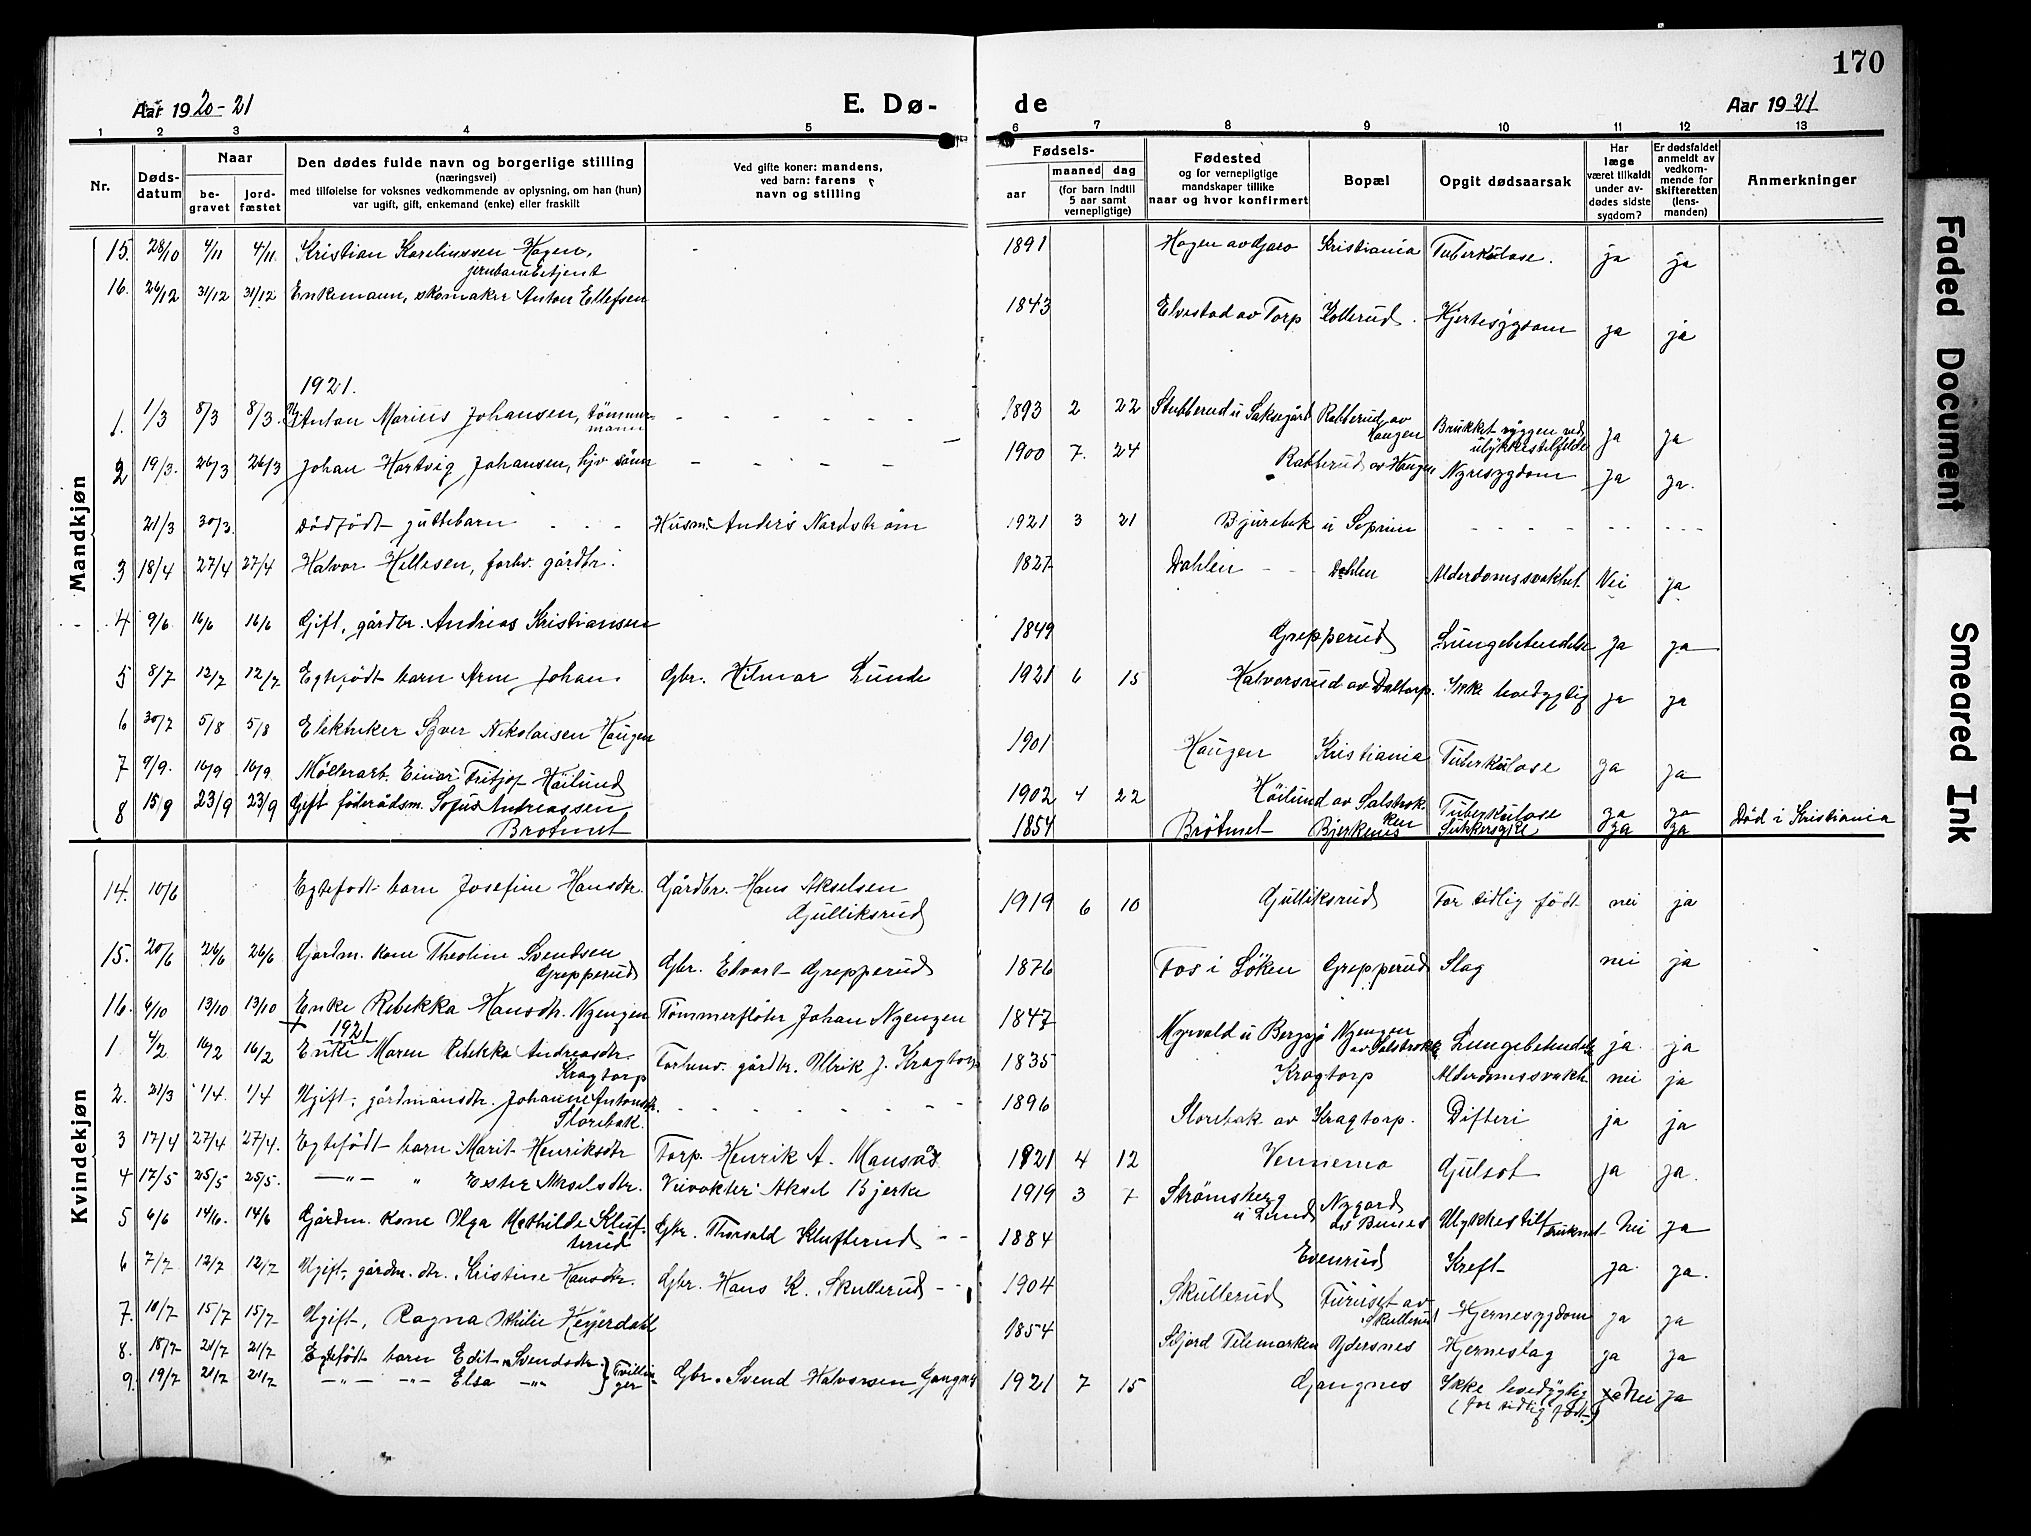 170
Aar 1920-21
E. Dø-
de
Aar 1921
1 2 3 4 5 6 7 8 9 10 11 12 13
Nr.
Døds-
datum
Naar
be-
gravet
jord-
fæstet
Den dødes fulde navn og borgerlige stilling
(næringsvei)
med tilføielse for voksnes vedkommende av oplysning, om han (hun)
var ugift, gift, enkemand (enke) eller fraskilt
Ved gifte koner: mandens,
ved barn: farens
navn og stilling
Fødsels-
aar
maaned dag
(for barn indtil
5 aar samt
vernepligtige)
Fødested
og for vernepligtige
mandskaper tillike
naar og hvor konfirmert
Bopæl
Opgit dødsaarsak
Har
læge
været tilkaldt
under av-
dødes sidste
sygdom?
Er dødsfaldet
anmeldt av
vedkom-
mende for
skifteretten
(lens-
manden)
Anmerkninger
Mandkjøn
15. 28/10 4/11 4/11 Kristian Karelinssen Hagen, 1891 Hagen av Kristiania Tuberkulose. ja ja
jernbanebetjent
16. 26/12 31/12 31/12 Enkemann, skomaker Anton Ellefsen 1843 Elvestad av Torp Kollerud. Hjertesygdom ja ja
1921.
1. 1/3 8/3 8/3 Anton Marius Johansen, tömmer- 1893 2 22 Stubberud u Saksegård Rabberud av Brukket ryggen ved ja ja
mann Haugen ulykkestilfelde
2 19/3. 26/3 26/3 Johan Hartvig Johansen, hjv sönn 1900 7. 24 Rabberud av Haugen Nyresygdom ja ja.
21/3 30/3. Dödfödt guttebarn Husm. Anders Nordström 1921 3 21 Bjurebek u Soprim
3 18/4 27/4 27/4 Halvor Hellesen, forhv. gårdbr. 1827 Dahlen Dahlen Alderdomssvakhet Nei ja
4 9/6 16/6 16/6 Gift, gårdbr. Andreas Kristiansen 1849 Grepperud Lungebetendelse ja ja
5 8/7 12/7 12/7 Egtefödt barn Arne Johan Gbr. Hilmar Lunde 1921 6 15 Halvorsrud av Daltorp. Ikke levedygtig ja ja
6 30/7 5/8 5/8 Elektriker Syver Nikolaisen Haugen 1901 Haugen Kristiania Tuberkulose ja ja
7 9/9. 16/9 16/9 Møllerarb. Einar Fritjof Höilund 1902 4 22 Höilund av Salstrok Tuberkulose ja ja
ken
8 15/9 23/9 23/9 Gift föderådsm. Sofus Andreassen 1854 Brötmet Bjerkenes Sukkersyke ja ja Död i Kristiania
Brötmet
Kvindekjøn
14. 10/6 Egtefödt barn Josefine Hansdtr. Gårdbr. Hans Akselsen 1919 6 10 Gulliksrud For tidlig födt nei ja
Gulliksrud
15. 20/6 26/6 26/6 Gardm. kone Theoline Svendsen Gbr. Edvart Grepperud 1876 Fos i Löken Grepperud Slag nei ja
Grepperud
16. 6/10 13/10 13/10 Enke Rebekka Hansdtr. Nyengen Tömmerfløter Johan Nyengen 1847 Myrvold u Bergsjø Nyengen Lungebetendelse ja. ja
av Salstrokk
1921
1 4/2 16/2 16/2 Enke Maren Rebekka Andreasdtr Forhenv. gårdbr. Ulrik J. Kragtorp 1835 Kragtorp Alderdomssvakh. nei ja
Kragtorp
2. 21/3 1/4. 1/4 Ugift, gårdmansdtr. Johanne Antonsdtr. 1896 Storebæk av Kragtorp. Difteri ja ja
Storebæk.
3 17/4 27/4 27/4. Egtefödt barn Marit Henriksdtr Torp. Henrik A. Mansås 1921 4 12 Vennemo Gulsot ja ja.
4 17/5 25/5 25/5. —"— " Ester Akselsdtr. Veivokter Aksel Bjerke 1919 3 7 Strömsberg Nygard Ulykkestilf. Nei ja
u Lund av Bunes Druknet
5 6/6 14/6. 14/6 Gårdm. kone Olga Mathilde Kluf- Gbr. Thorvald Klufterud 1884 Evenrud Kreft ja. ja.
terud
6 7/7 12/7 12/7 Ugift, gårdm. dtr. Kristine Hansdtr. Gbr. Hans K. Skullerud 1904 Skullerud Furuset av Hjernesygdom ja ja
Skullerud
7. 10/7 15/7 15/7. Ugift, Ragna Heyerdahl 1854 Telemarken Ydersnes Hjerneslag ja ja
8. 18/7 21/7 21/7 Egtefödt barn Edit Svendsdtr Tvillin-
9. 19/7 21/7 21/7 —"— —"— Elsa —"— ger Gbr. Svend Halvorsen Gangnes 1921 7 15 Gangnes Ikke levedygtig Nei ja
(for tidlig födt)
Faded Document
Smeared Ink